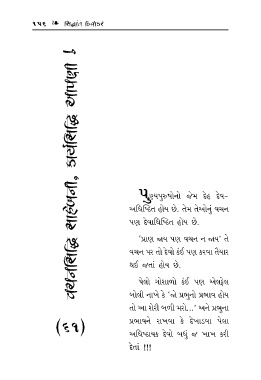 ૧૫૬ ❧ સિદ્ધાંત દિવાકર
વચનસિદ્ધિ સાહેબની, કાર્યસિદ્ધિ આપણી !
(૬૧)
પુણ્યપુરુષોનો જેમ દેહ દેવ-
અધિષ્ઠિત હોય છે. તેમ તેઓનું વચન
પણ દેવાધિષ્ઠિત હોય છે.
‘પ્રાણ જાય પણ વચન ન જાય’ તે
વચન પર તો દેવો કંઈ પણ કરવા તૈયાર
થઈ જતાં હોય છે.
પેલો ગોશાળો કંઈ પણ એલફેલ
બોલી નાખે કે ‘જો પ્રભુનો પ્રભાવ હોય
તો આ શેરી બળી મરો...’ અને પ્રભુના
પ્રભાવને રાખવા કે દેખાડવા પેલા
અધિષ્ઠાયક દેવો બધું જ ખાખ કરી
દેતાં !!!